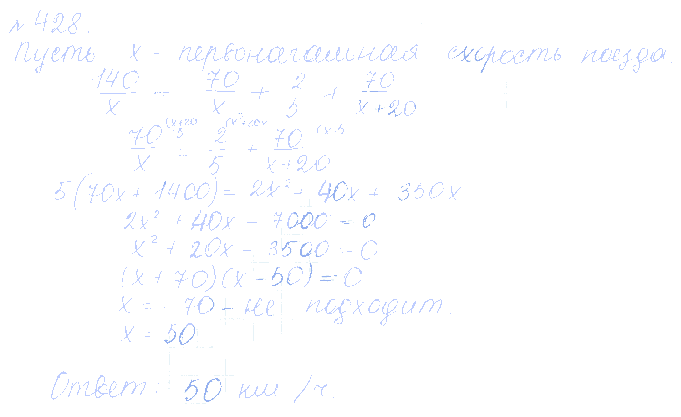 № 428.
Пусть x - первоначальная скорость поезда.
140/x = 70/x + 2/5 + 70/(x+20)
70/x = 2/5 + 70/(x+20)
5(70x + 1400) = 2x² + 40x + 350x
2x² + 40x - 7000 = 0
x² + 20x - 3500 = 0
(x + 70)(x - 50) = 0
x = - 70 - не подходит.
x = 50
Ответ: 50 км/ч.